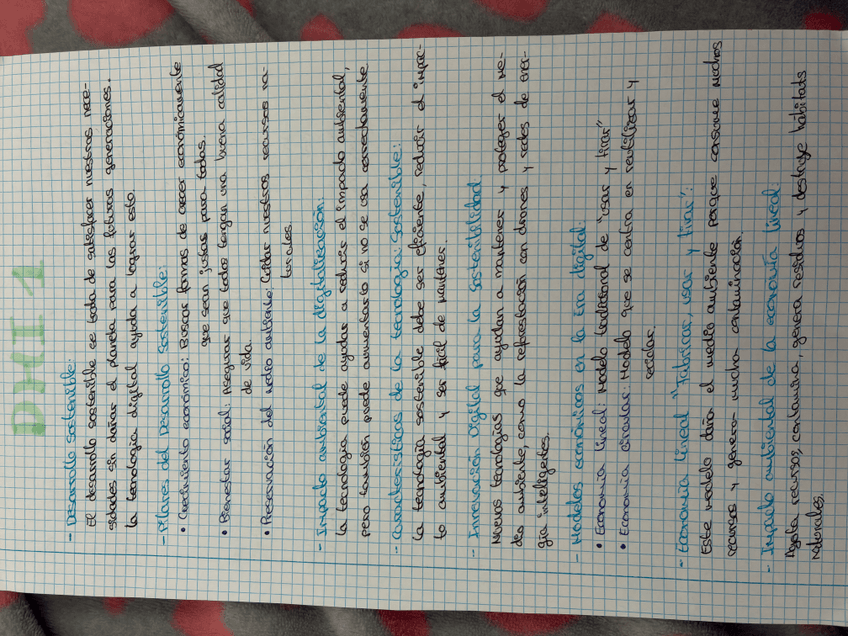 DHI 1
- Desarrollo sostenible:
El desarrollo sostenible se trata de satisfacer nuestras nece-
sidades sin dañar el planeta para las futuras generaciones.
La tecnología digital ayuda a lograr esto.
- Pilares del Desarrollo Sostenible:
• Crecimiento económico: Buscar formas de crecer económicamente
que sean justas para todos.
• Bienestar social: Asegurar que todos tengan una buena calidad
de vida.
• Preservación del medio ambiente: Cuidar nuestros recursos na-
turales.
- Impacto ambiental de la digitalización:
La tecnología puede ayudar a reducir el impacto ambiental,
pero también puede aumentarlo si no se usa correctamente
- Características de la tecnología Sostenible:
La tecnología sostenible debe ser eficiente, reducir el impac-
to ambiental y ser fácil de mantener.
- Innovación Digital para la Sostenibilidad:
Nuevas tecnologías que ayudan a mantener y proteger el me-
dio ambiente, como la reforestación con drones y redes de ener-
gía inteligentes.
- Modelos económicos en la Era digital:
• Economía lineal: Modelo tradicional de "usar y tirar"
• Economía circular: Modelo que se centra en reutilizar y
reciclar.
- Economía Lineal "Fabricar, usar y tirar":
Este modelo daña el medio ambiente porque consume muchos
recursos y genera mucha contaminación.
- Impacto ambiental de la economía lineal:
Agota recursos, contamina, genera residuos y destruye hábitats
naturales.